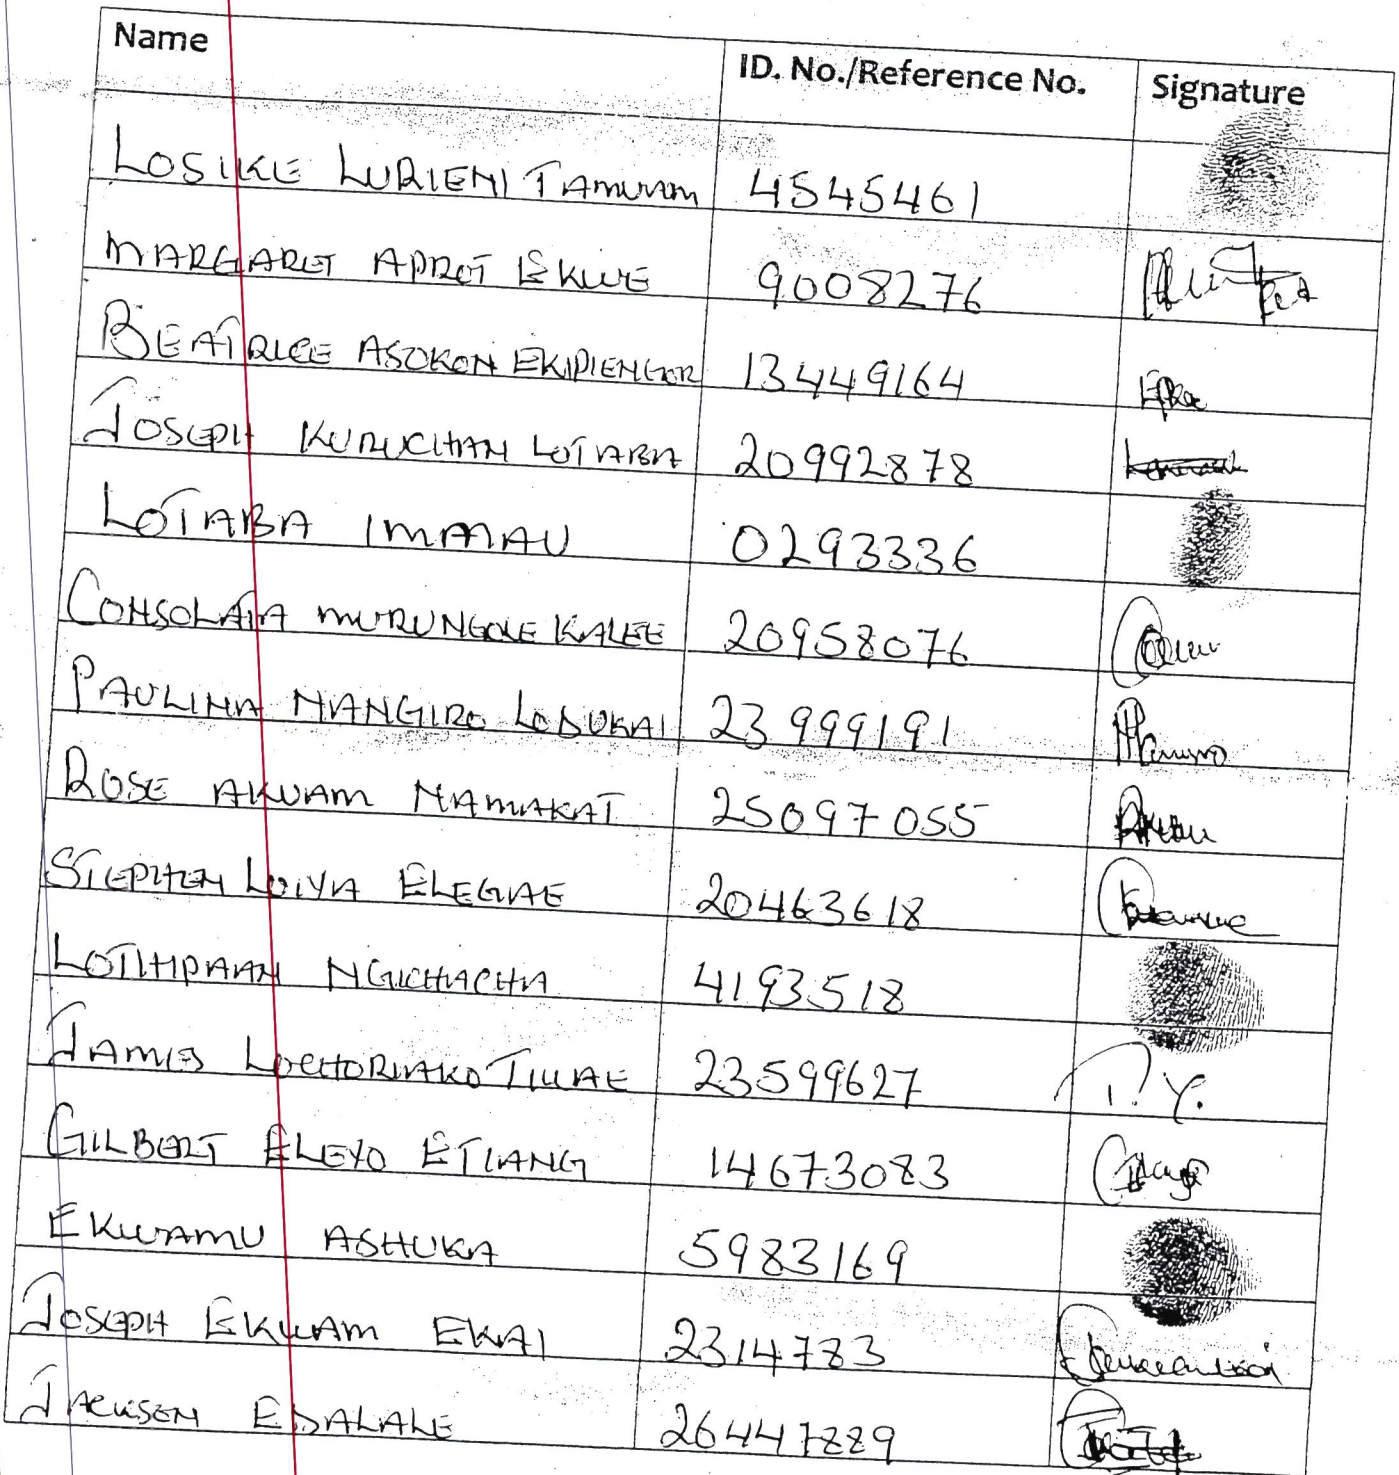 Name ID. No./Reference No. Signature
LOSIKE LURIENI TAMURAM 4545461
MARGARET APROT EKUWE 9008276
BEATRICE ASOKON EKIPIENGOR 13449164
JOSEPH KURUCHAN LOTABA 20992878
LOTABA IMMAU 0293336
CONSOLATA MURUNGOLE KALEE 20958076
PAULINA NANGIRO LODUKAI 23999191
ROSE AKUAM NAMAKAT 25097055
STEPHEN LOIYA ELEGAE 20463618
NGICHACHA 4193518
JAMES 23599627
GILBERT ELEYO ETIANG 14673083
EKWAMU ASHUKA 5983169
JOSEPH EKWAM EKAI 2314783
JACKSON EDALALE 26447889